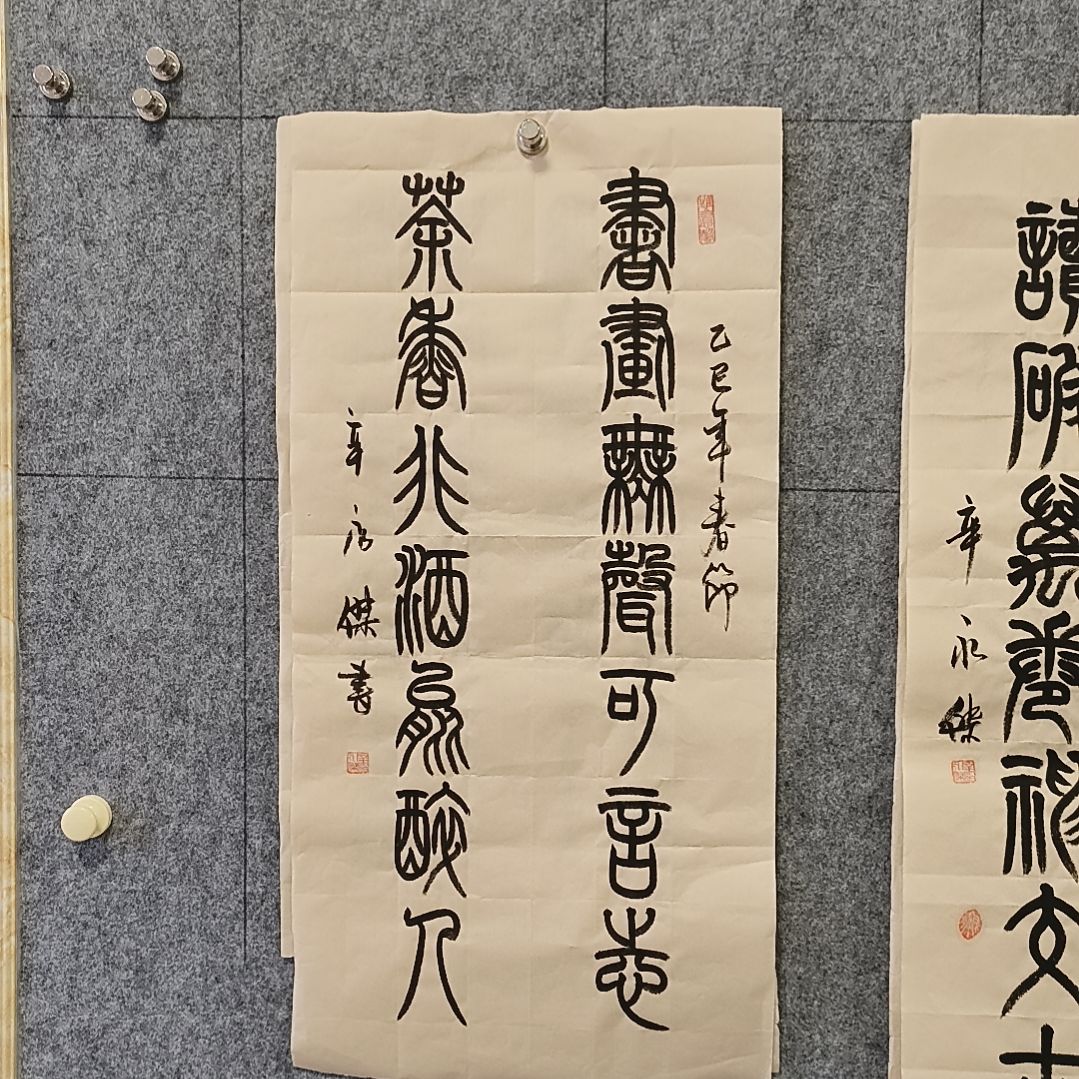 乙巳年春節
書畫無聲可言志
茶香非酒醉人
辛永傑書
讀破萬卷
文
辛永傑